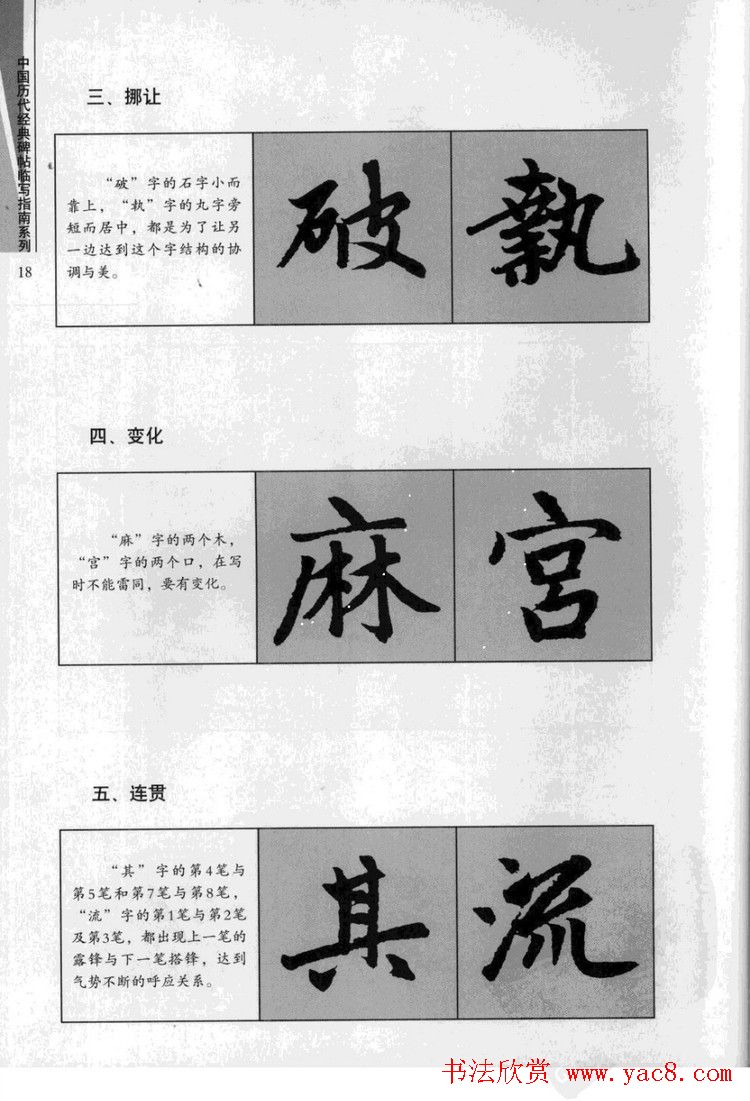 中国历代经典碑帖临写指南系列
18
三、挪让
“破”字的石字小而
靠上，“执”字的丸字旁
短而居中，都是为了让另
一边达到这个字结构的协
调与美。
破 執
四、变化
“麻”字的两个木，
“宫”字的两个口，在写
时不能雷同，要有变化。
麻 宮
五、连贯
“其”字的第4笔与
第5笔和第7笔与第8笔，
“流”字的第1笔与第2笔
及第3笔，都出现上一笔的
露锋与下一笔搭锋，达到
气势不断的呼应关系。
其 流
书法欣赏 www.yac8.com